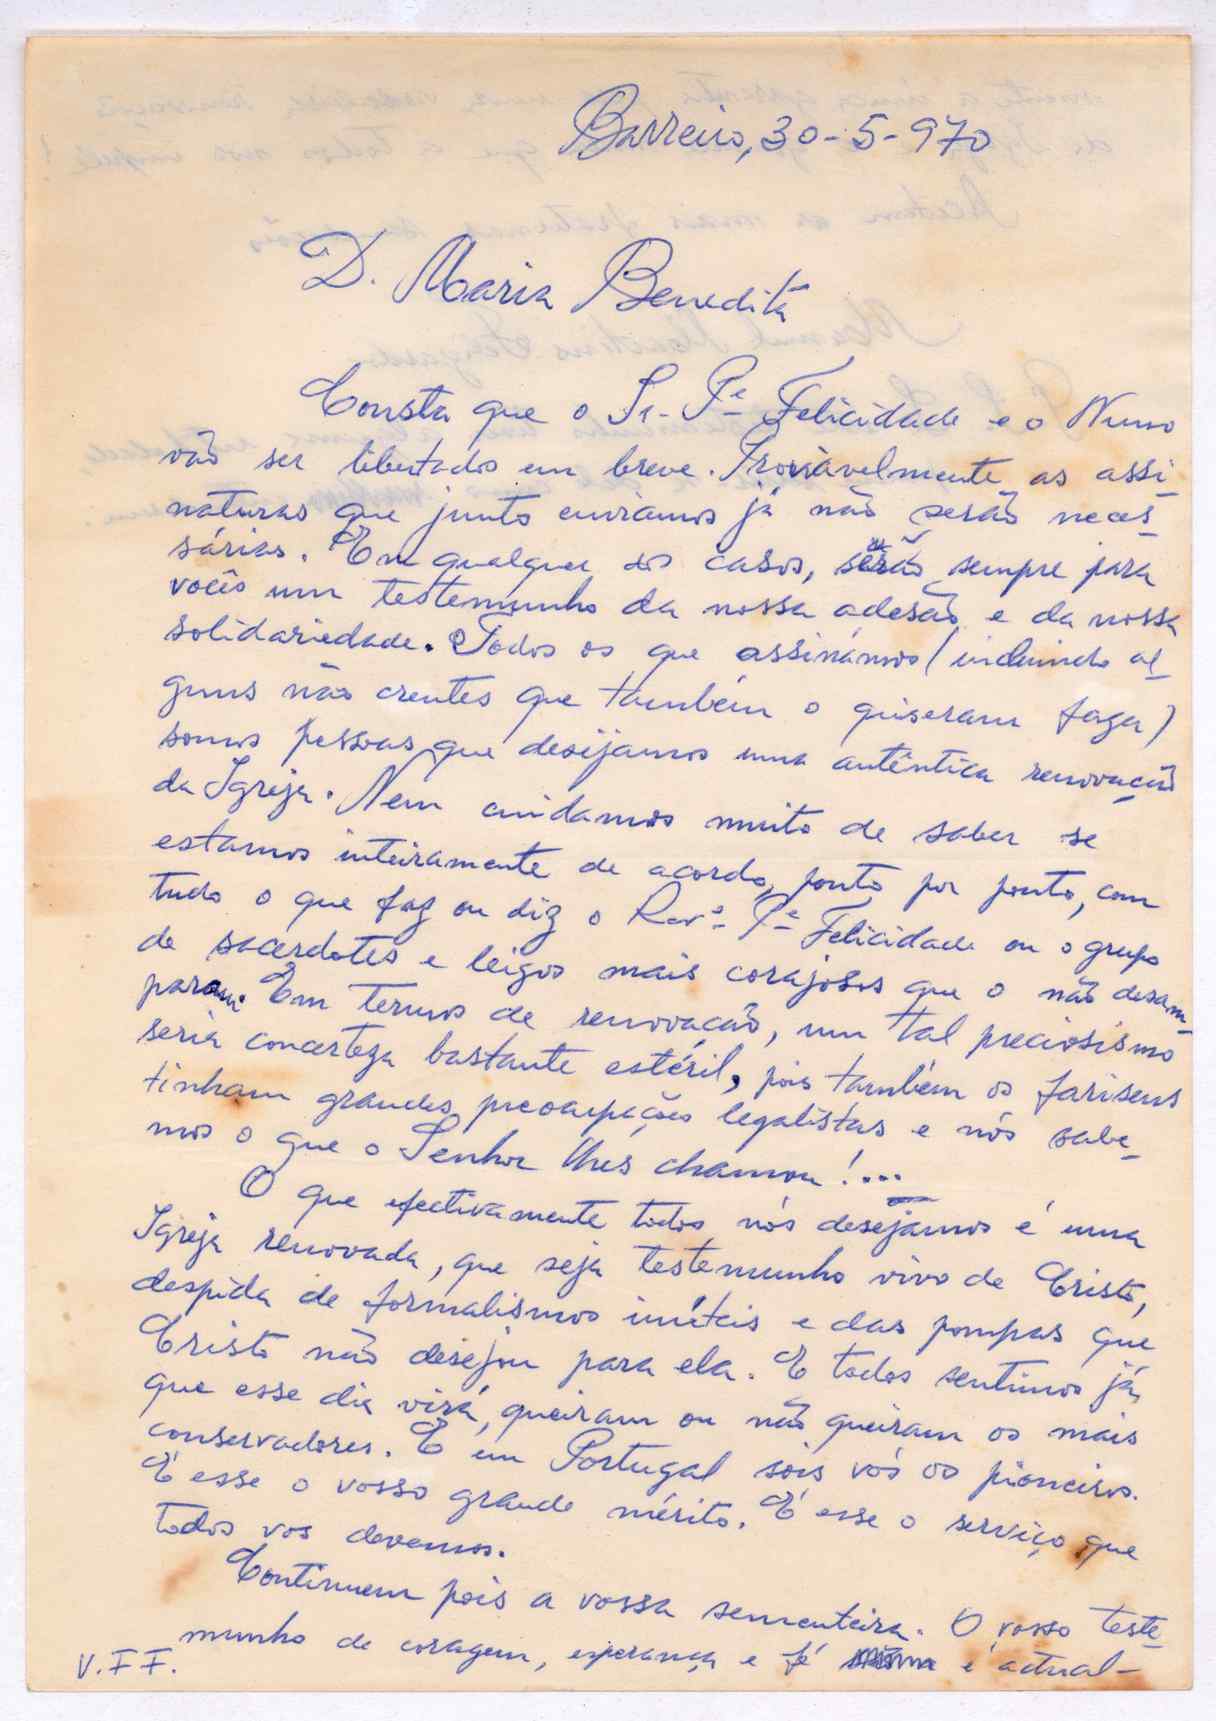 Barreiro, 30-5-970
D. Maria Benedita
Consta que o Sr. Pe Felicidade e o Nuno
vão ser libertados em breve. Provàvelmente as assi-
naturas que junto enviamos já não serão neces-
sárias. Em qualquer dos casos, serão sempre para
vocês um testemunho da nossa adesão e da nossa
solidariedade. Todos os que assinámos (incluindo al-
guns não crentes que também o quiseram fazer)
somos pessoas que desejamos uma autêntica renovação
da Igreja. Nem cuidamos muito de saber se
estamos inteiramente de acordo, ponto por ponto, com
tudo o que faz ou diz o Revo Pe Felicidade ou o grupo
de sacerdotes e leigos mais corajosos que o não desam-
param. Em termos de renovação, um tal preciosismo
seria concerteza bastante estéril, pois também os fariseus
tinham grandes preocupações legalistas e nós sabe-
mos o que o Senhor lhes chamou!...
O que efectivamente todos nós desejamos é uma
Igreja renovada, que seja testemunho vivo de Cristo,
despida de formalismos inúteis e das pompas que
Cristo não desejou para ela. E todos sentimos já
que esse dia virá, queiram ou não queiram os mais
conservadores. E em Portugal sois vós os pioneiros.
É esse o vosso grande mérito. É esse o serviço que
todos vos devemos.
Continuem pois a vossa sementeira. O vosso teste-
munho de coragem, esperança e fé é actual-
V.F.F.